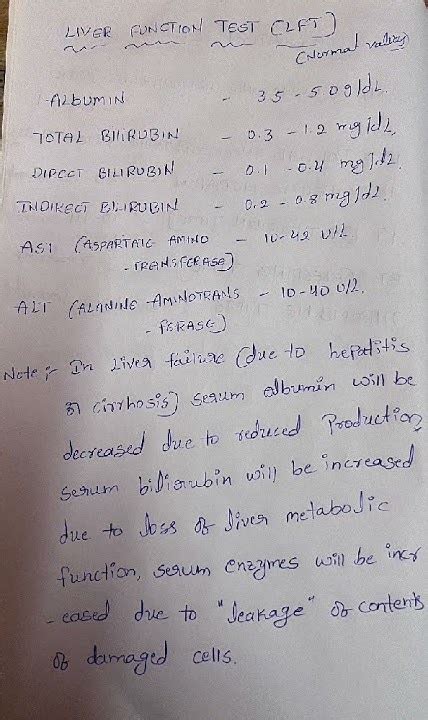 LIVER FUNCTION TEST (LFT)
(Normal values)
ALBUMIN - 35 - 50 g/dL
TOTAL BILIRUBIN - 0.3 - 1.2 mg/dL
DIRECT BILIRUBIN - 0.1 - 0.4 mg/dL
INDIRECT BILIRUBIN - 0.2 - 0.8 mg/dL
AST (ASPARTATE AMINO - 10-42 U/L
- TRANSFERASE)
ALT (ALANINE AMINOTRANS - 10-40 U/L
- FERASE)
Note :- In Liver failure (due to hepatitis
or cirrhosis) serum albumin will be
decreased due to reduced Production,
serum bilirubin will be increased
due to loss of liver metabolic
function, serum enzymes will be incr
- eased due to "leakage" of contents
of damaged cells.